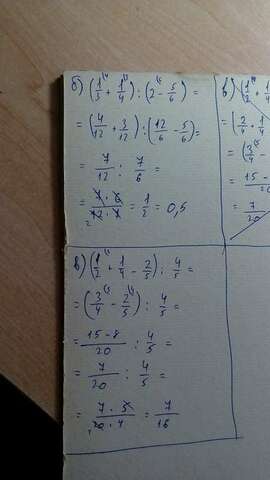 б) (1/3 + 1/4) : (2 - 5/6) =
= (4/12 + 3/12) : (12/6 - 5/6) =
= 7/12 : 7/6 =
= 7·6/12·7 = 1/2 = 0,5
в) (1/2 + 1/4 - 2/5) : 4/5 =
= (3/4 - 2/5) : 4/5 =
= 15-8/20 : 4/5 =
= 7/20 : 4/5 =
= 7·5/20·4 = 7/16
в) (1/2 + 1
= (2/4 + 1/4
= (3/4
= 15-
20
= 7/20